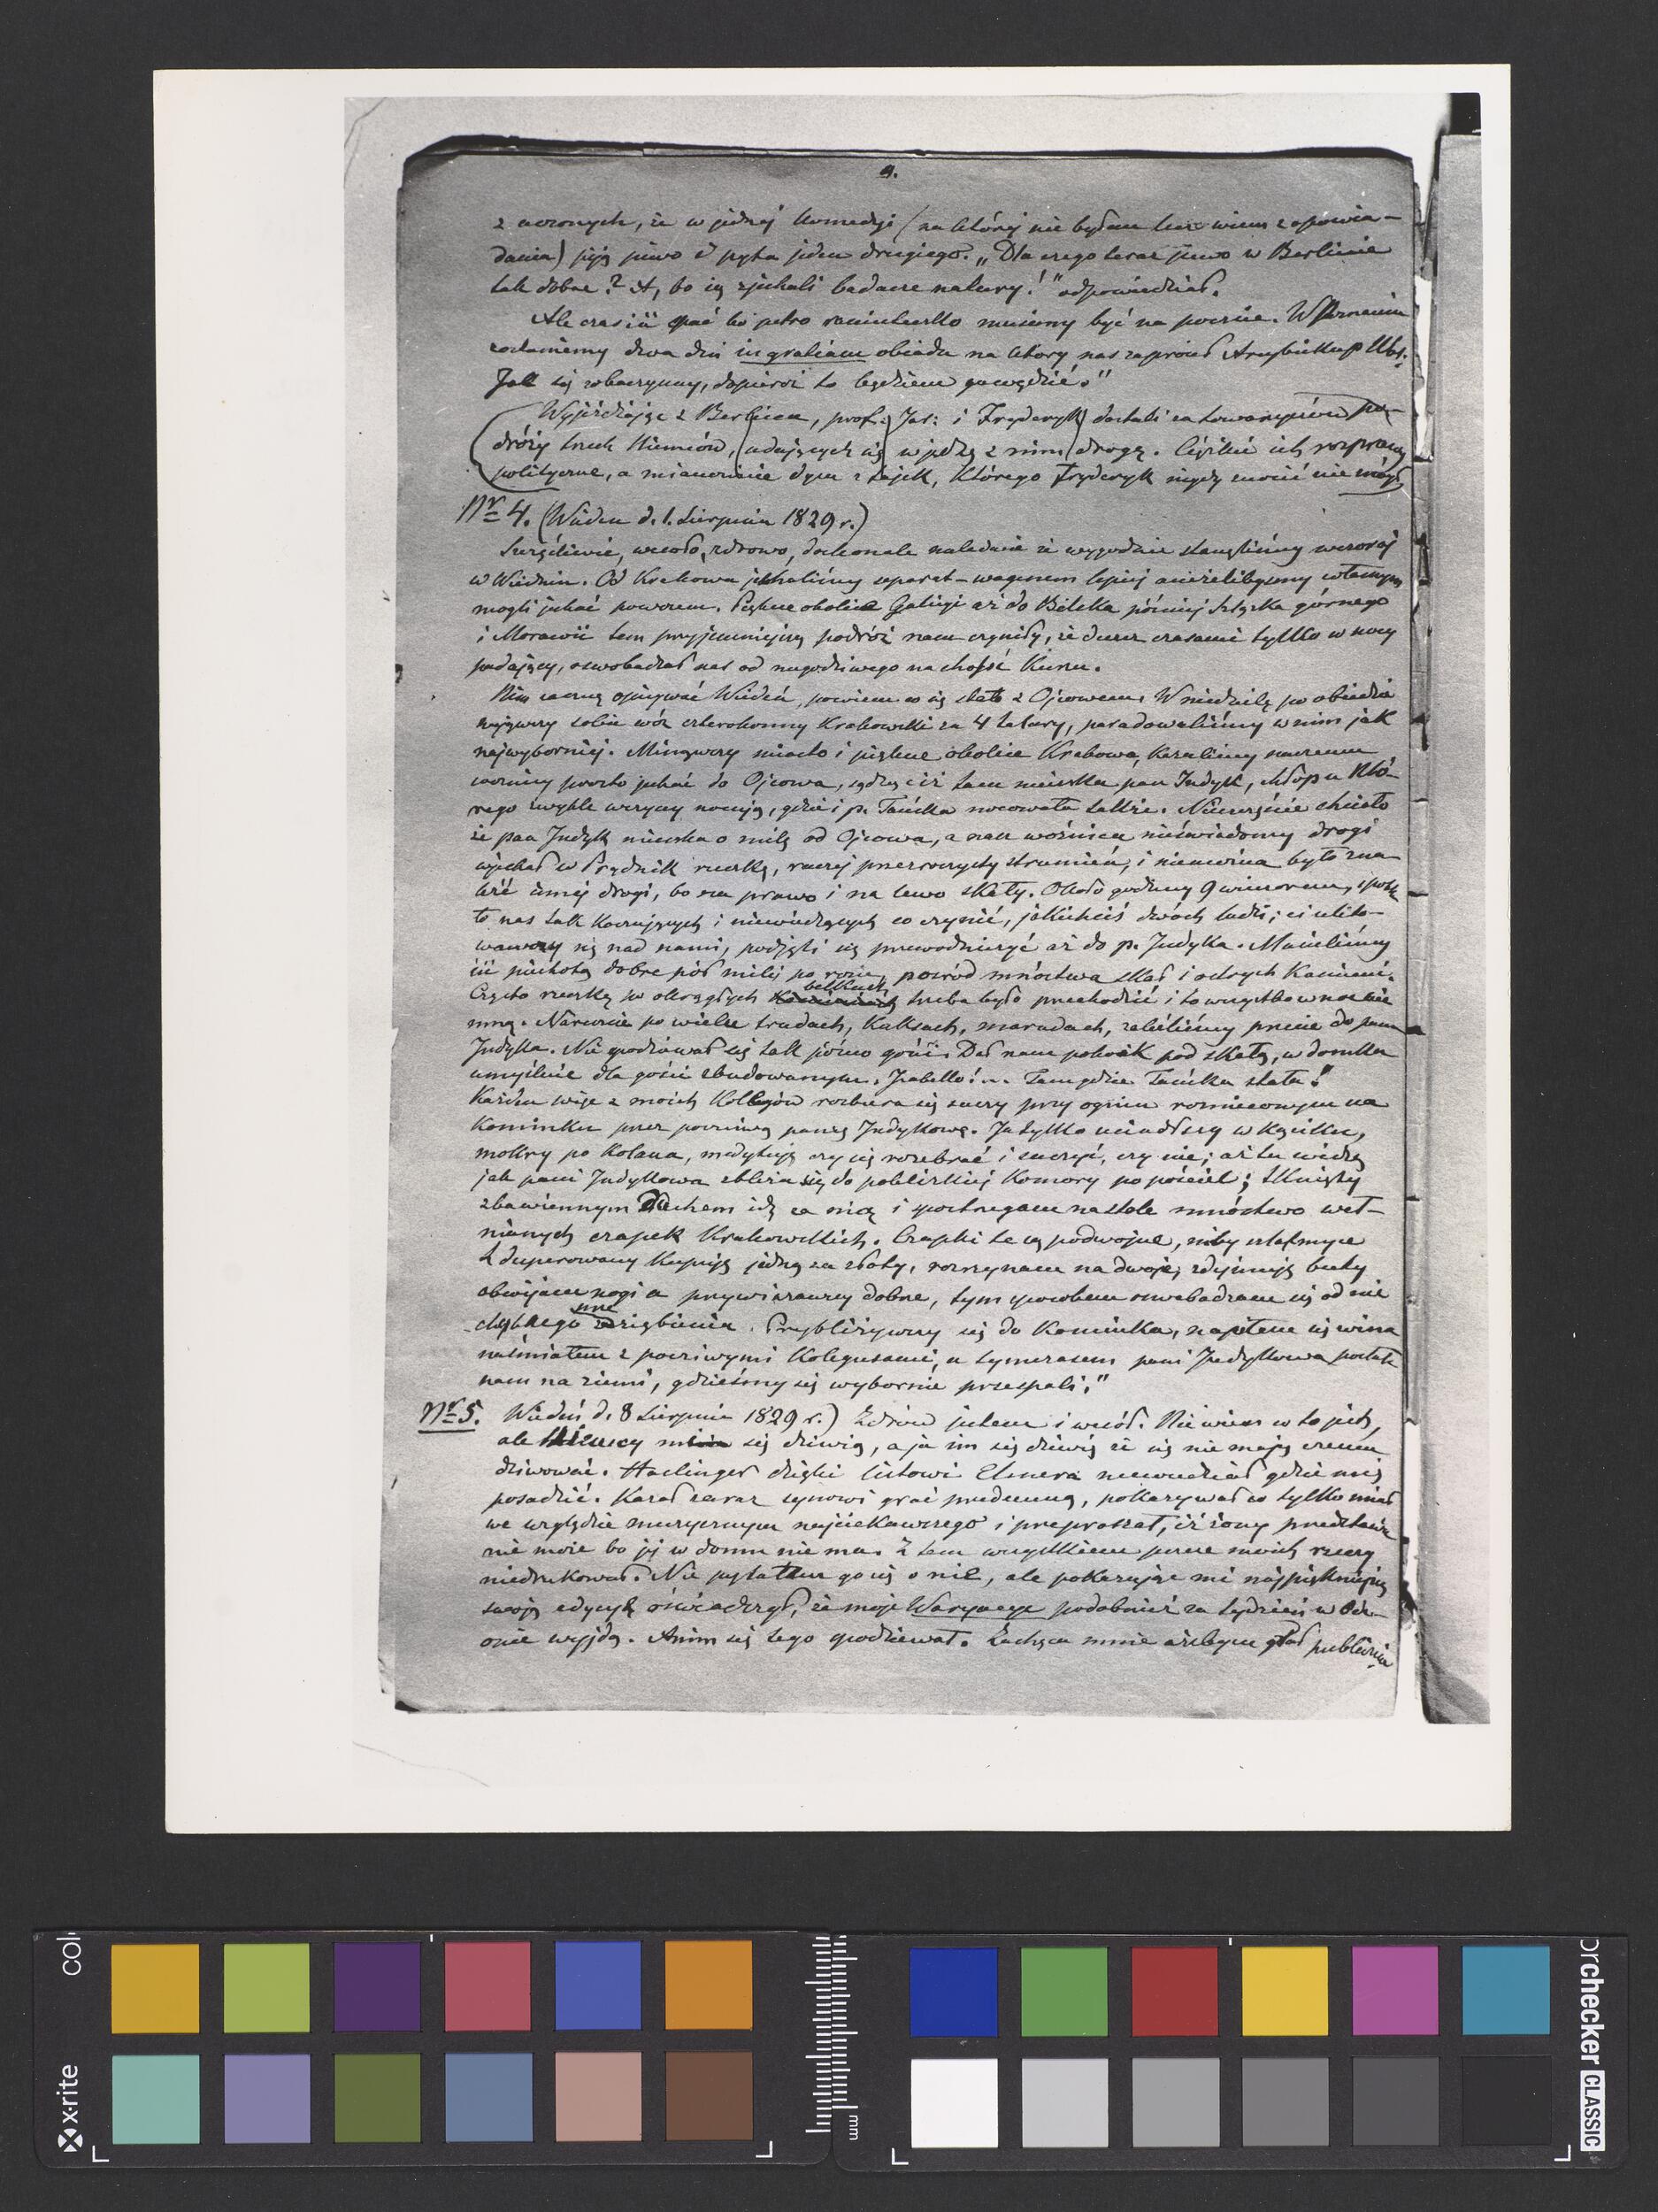 9.
z uczonych, że w jednej komedyi (na której nie byłem lecz wiem z opowia-
dania) piją piwo i pyta jeden drugiego. „Dla czego teraz piwo w Berlinie
tak dobre? A, bo się zjechali badacze natury!" odpowiedział.
Ale czas iść spać bo jutro raniuteńko musimy być na poczcie. W Poznaniu
zostaniemy dwa dni in gratiam obiadu na który nas zaprosił Arcybiskup
Jak się zobaczymy, dopieroż to będziem gawędzić."
Wyjeżdżając z Berlina, prof: Jar: i Fryderyk dostali za towarzyszów po-
dróży trzech Niemców, udających się w jedzą z nimi drogę. Ciężkie ich rozprawy
polityczne, a mianowicie dym z fajek, którego Fryderyk nigdy znosić nie mógł,
Nr 4. (Wiedeń d. 1. Sierpnia 1829 r.)
Szczęśliwie, wesoło, zdrowo, doskonale nieledwie że wygodnie stanęliśmy wczoraj
w Wiedniu. Od Krakowa jechaliśmy separat-wagenem lepiej aniżelibyśmy własnym
mogli jechać powozem. Piękne okolice Galicyi aż do Bielska później Szląska górnego
i Morawii tem przyjemniejszą podróż nam czyniły, że deszcz czasami tylko w nocy
padający, oswobadzał nas od niegodziwego nachodzić kurzu.
Nim zacznę opisywać Wiedeń, powiem co się stało z Ojcowem. W niedzielę po obiedzie
najęwszy sobie wóz czterokonny Krakowski za 4 talary, paradowaliśmy w nim jak
najwyborniej. Minąwszy miasto i piękne okolice Krakowa, kazaliśmy naszemu
woźnicy prosto jechać do Ojcowa, sądząc iż tam mieszka pan Indyk, chłop u któ-
rego zwykle wszyscy nocują, gdzie i p. Tańska nocowała także. Nieszczęście chciało
że pan Indyk mieszka o milę od Ojcowa, a nasz woźnica nieświadomy drogi
wjechał w Prądnik rzeczkę, raczej przezroczysty strumień, i niemożna było zna-
leźć innej drogi, bo na prawo i na lewo skały. Około godziny 9 wieczorem, spotka
to nas tak koczujących i niewiedzących co czynić, jakichciś dwóch ludzi; ci ulito-
wawszy się nad nami, podjęli się przewodniczyć aż do p. Indyka. Musieliśmy
iść piechotą dobre pół mili po rosie, pośród mnóstwa skał i ostrych kamieni.
Często rzeczkę po okrągłych belkach trzeba było przechodzić i to wszystko w noc cie
mną. Nareszcie po wielu trudach, kuksach, marudach, zaleźliśmy przecie do pana
Indyka. Nie spodziewał się tak późno gości. Dał nam pokoik pod skałą, w domku
umyślnie dla gości zbudowanym. Izabello!... Tam gdzie Tańska stała!
Każden więc z moich Kollegów rozbiera się suszy przy ogniu roznieconym na
kominku przez poczciwą panię Indykową. Ja tylko usiadłszy w kąciku,
mokry po kolana, medytuję czy się rozebrać i suszyć, czy nie; aż tu widzę
jak pani Indykowa zbliża się do poblizkiej komory po pościel; tknięty
zbawiennym Duchem idę za nią i spostrzegam na stole mnóstwo weł-
nianych czapek Krakowskich. Czapki te są podwójne, niby szlafmyce
Zdesperowany kupuję jednę za złoty, rozrzynam na dwoje, zdejmuję buty
obwijam nogi a przywiązawszy dobrze, tym sposobem oswobadzam się od nie
chybnego zaziębienia. Przybliżywszy się do kominka, napiłem się wina
naśmiałem z poczciwymi Kolegusami, a tymczasem pani Indykowa posłała
nam na ziemi, gdzieśmy się wybornie przespali."
Nr 5. Wiedeń d. 8 Sierpnia 1829 r.) Zdrów jestem i wesół. Nie wiem co to jest,
ale Niemcy się dziwią, a ja im się dziwię że się nie mają czemu
dziwować. Haslinger dzięki listowi Elsnera niewiedział gdzie mię
posadzić. Kazał zaraz synowi grać przedemną, pokazywał co tylko miał
we względzie muzycznym najciekawszego i przepraszał, iż żony przedstawić
nie może bo jej w domu nie ma. Z tem wszystkiem jeszcze moich rzeczy
niedrukował. Nie pytałem go się o nie, ale pokazując mi najpiękniejszą
swoję edycyę oświadczył, że moje Waryacye podobnież za tydzień w Ode-
onie wyjdą. Anim się tego spodziewał. Zachęca mnie ażebym grał publicznie